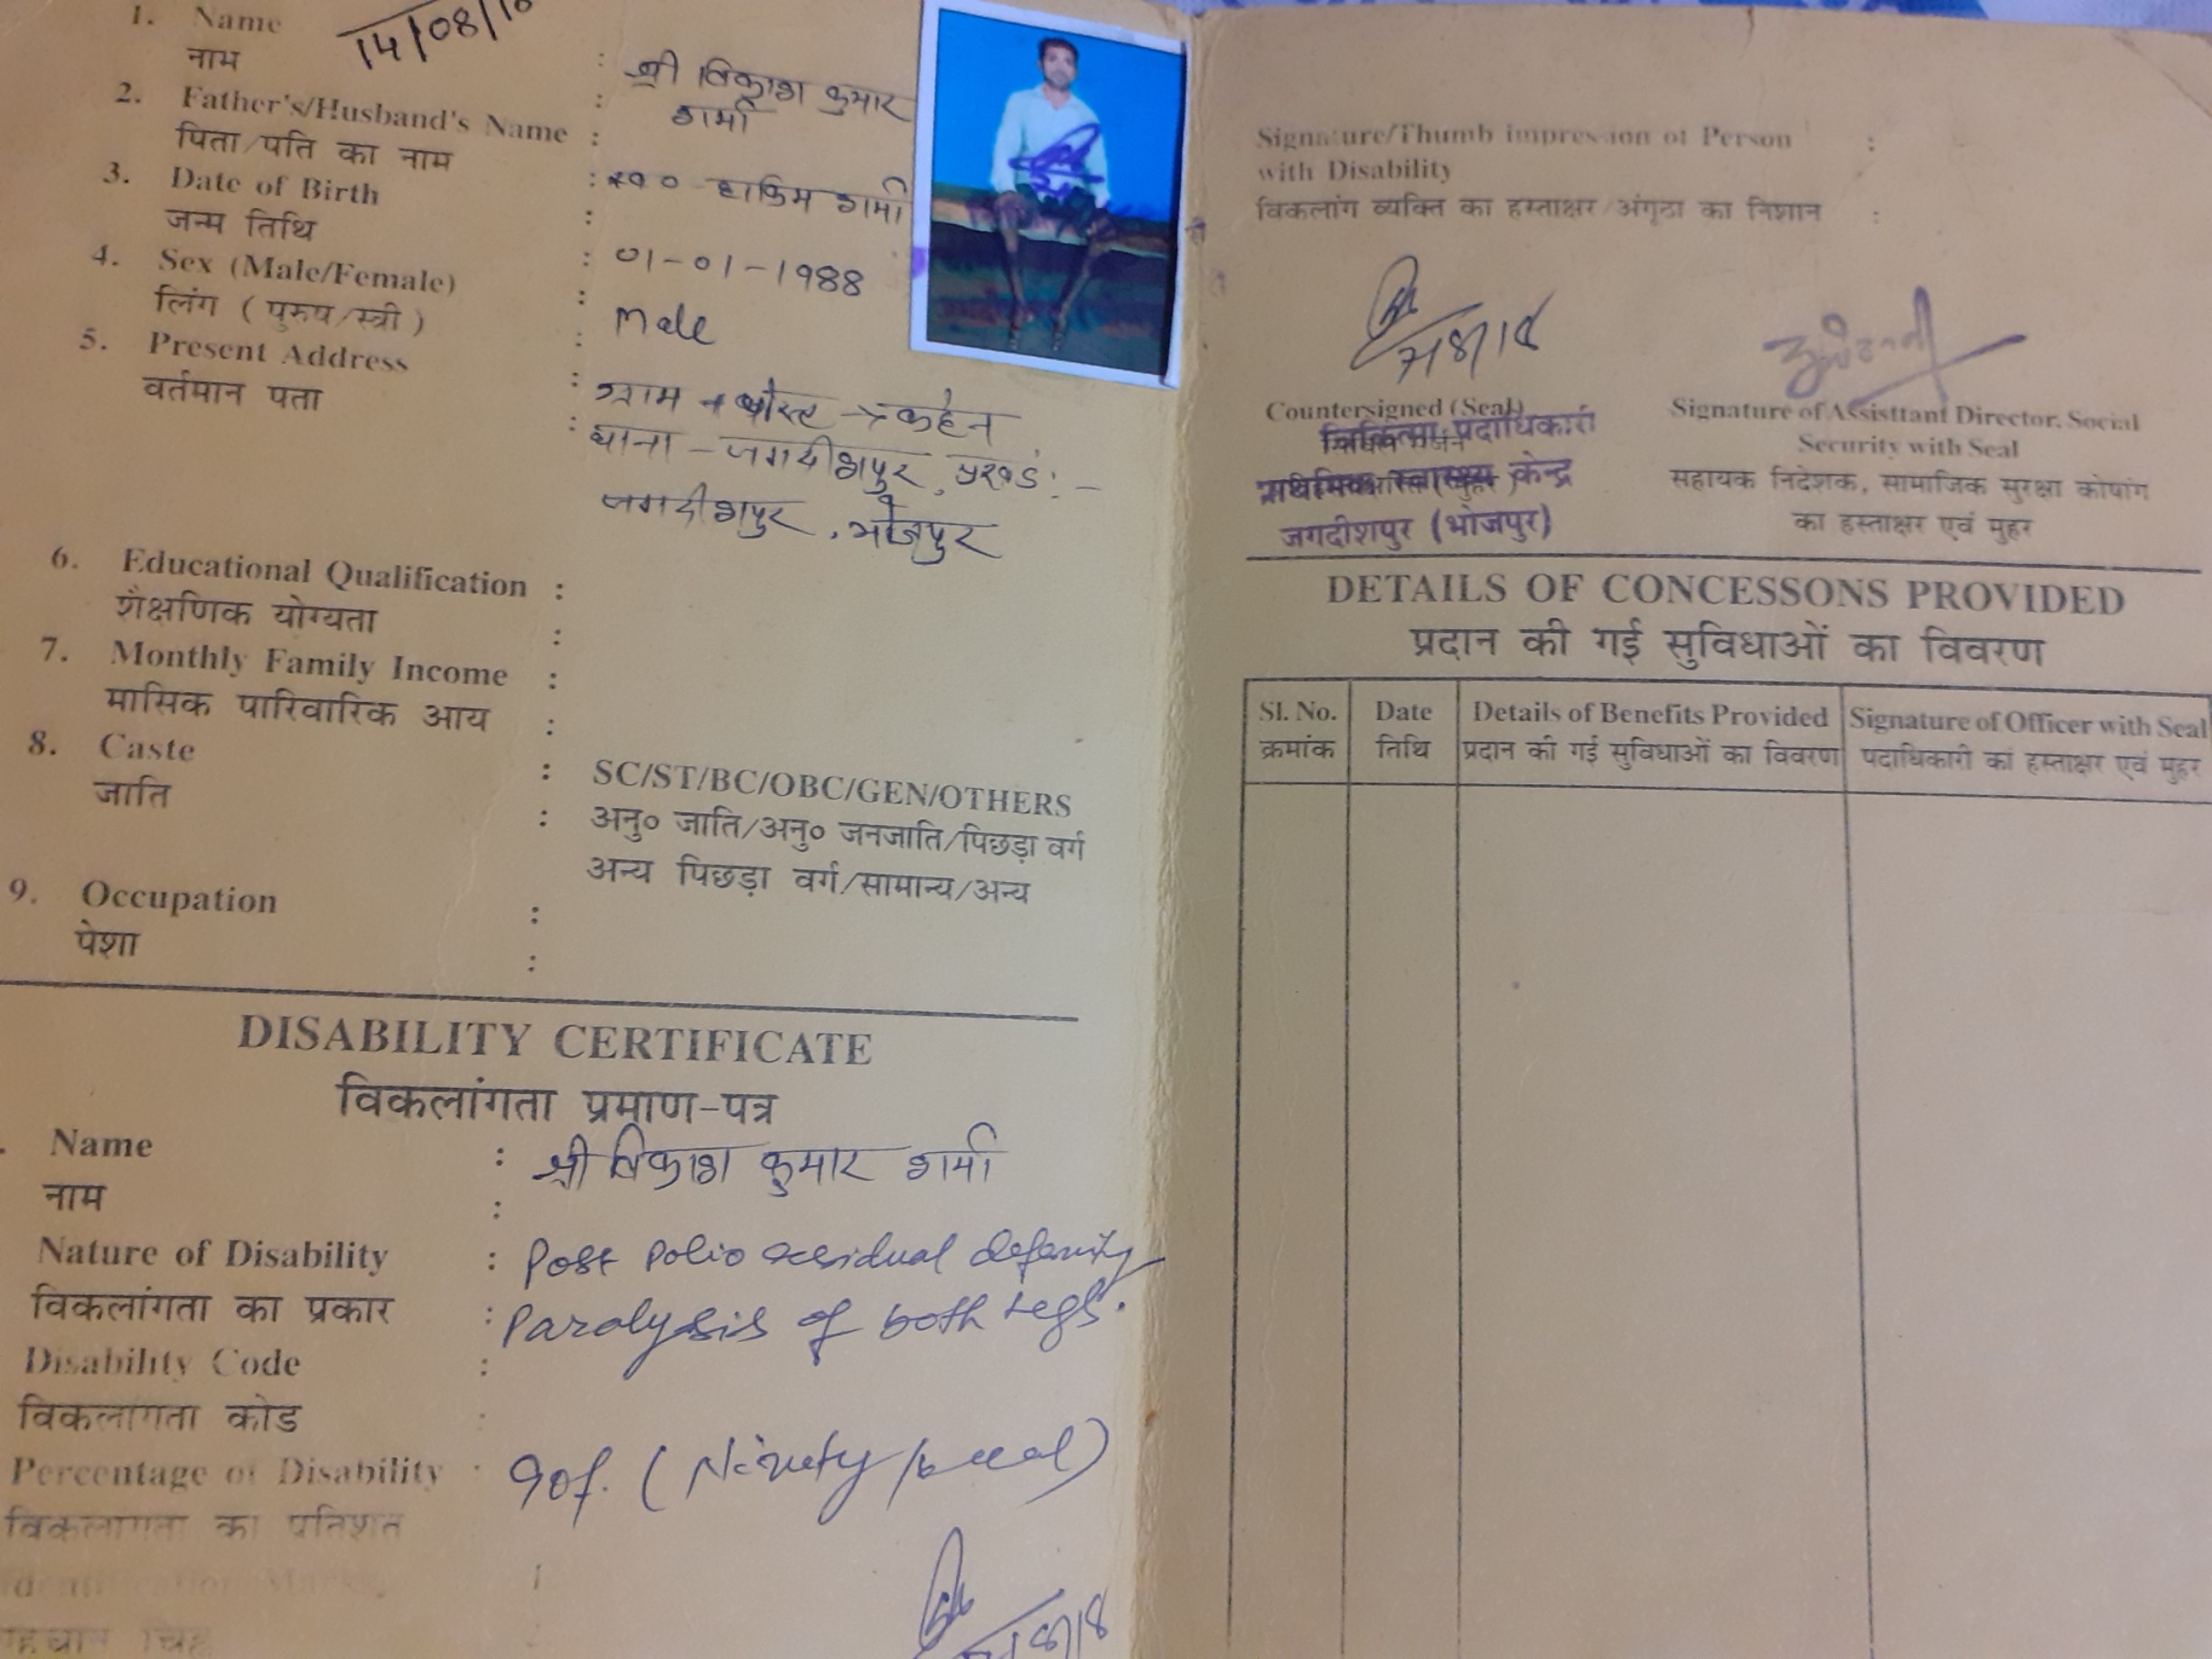 14/08/18
1. Name
नाम
: श्री विकाश कुमार
शर्मा
2. Father's/Husband's Name :
पिता/पति का नाम
: स्व० हाकिम शर्मा
3. Date of Birth
जन्म तिथि
: 01-01-1988
4. Sex (Male/Female)
लिंग (पुरुष/स्त्री)
: male
5. Present Address
वर्तमान पता
: ग्राम + पोस्ट → कहेन
: थाना - जगदीशपुर, प्रखंड :-
जगदीशपुर, भोजपुर
6. Educational Qualification :
शैक्षणिक योग्यता :
7. Monthly Family Income :
मासिक पारिवारिक आय :
8. Caste : SC/ST/BC/OBC/GEN/OTHERS
जाति : अनु० जाति/अनु० जनजाति/पिछड़ा वर्ग
अन्य पिछड़ा वर्ग/सामान्य/अन्य
9. Occupation :
पेशा :
DISABILITY CERTIFICATE
विकलांगता प्रमाण-पत्र
Name : श्री विकाश कुमार शर्मा
नाम :
Nature of Disability : Post Polio residual deformity
विकलांगता का प्रकार : Paralysis of both Legs.
Disability Code :
विकलांगता कोड :
Percentage of Disability : 90%. (Ninety
विकलांगता का प्रतिशत
Identification Marks
पहचान चिह्न
Signature/Thumb impression of Person :
with Disability
विकलांग व्यक्ति का हस्ताक्षर/अंगूठा का निशान :
Countersigned (Seal)
चिकित्सा पदाधिकारी
प्राथमिक स्वास्थ्य केन्द्र
जगदीशपुर (भोजपुर)
Signature of Assisttant Director, Social
Security with Seal
सहायक निदेशक, सामाजिक सुरक्षा कोषांग
का हस्ताक्षर एवं मुहर
DETAILS OF CONCESSONS PROVIDED
प्रदान की गई सुविधाओं का विवरण
Sl. No. Date Details of Benefits Provided Signature of Officer with Seal
क्रमांक तिथि प्रदान की गई सुविधाओं का विवरण पदाधिकारी का हस्ताक्षर एवं मुहर